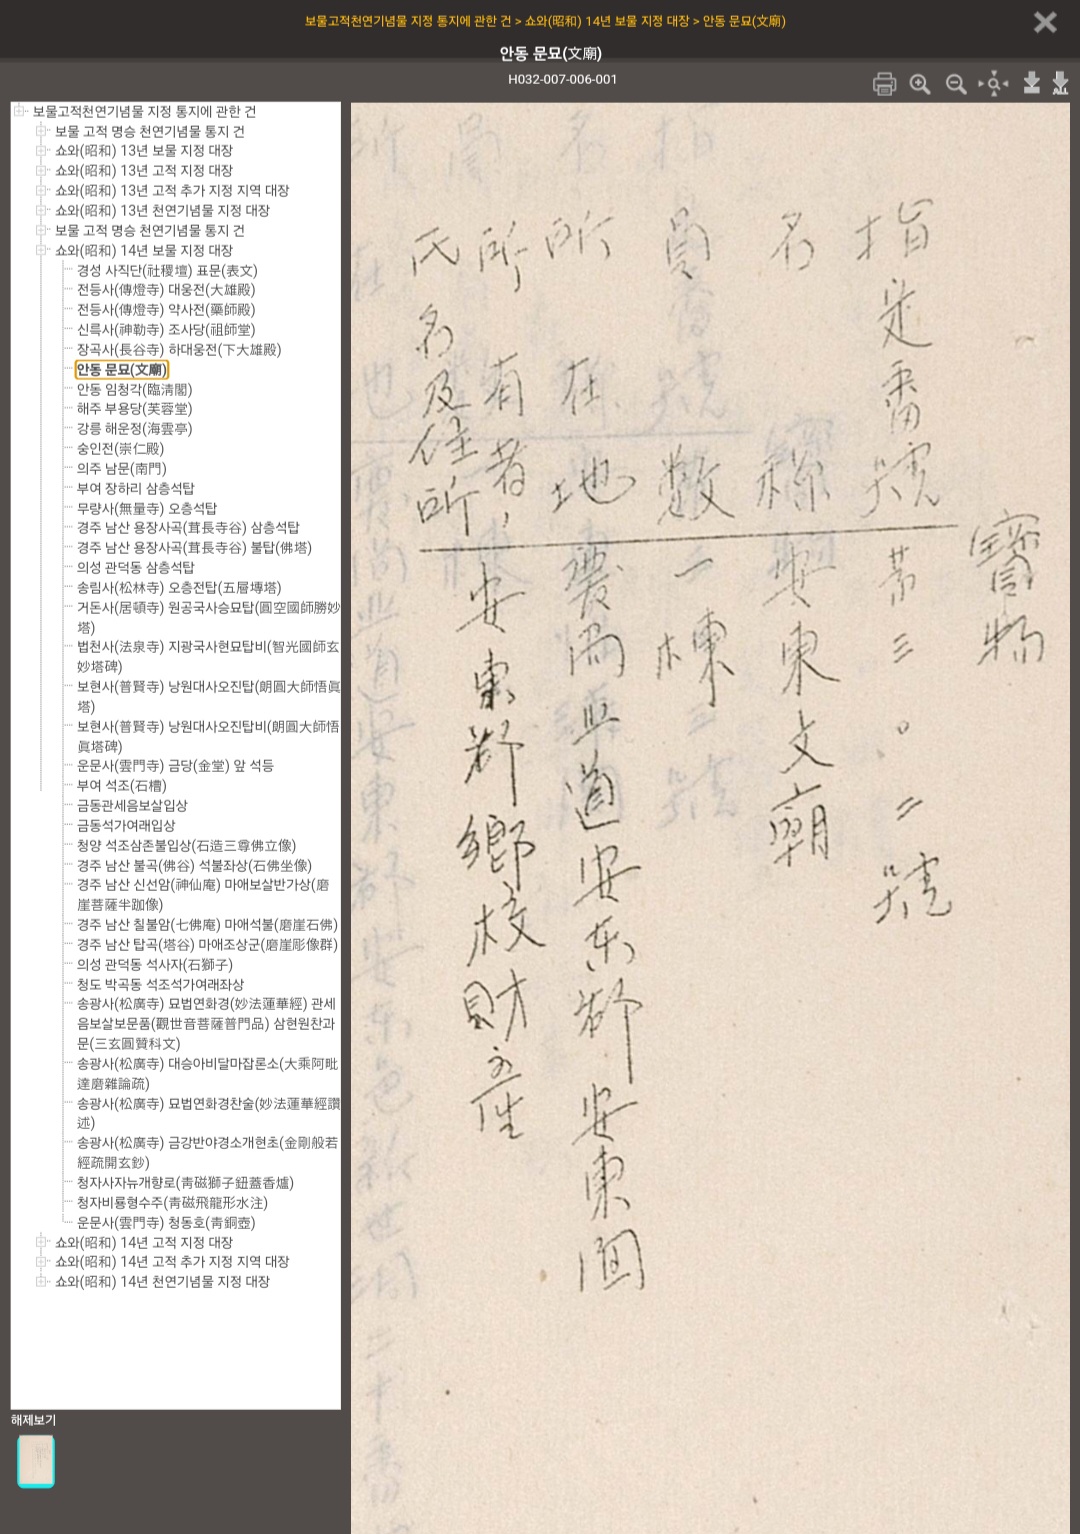 보물고적천연기념물 지정 통지에 관한 건 > 쇼와(昭和) 14년 보물 지정 대장 > 안동 문묘(文廟)
안동 문묘(文廟)
H032-007-006-001
보물고적천연기념물 지정 통지에 관한 건
보물 고적 명승 천연기념물 통지 건
쇼와(昭和) 13년 보물 지정 대장
쇼와(昭和) 13년 고적 지정 대장
쇼와(昭和) 13년 고적 추가 지정 지역 대장
쇼와(昭和) 13년 천연기념물 지정 대장
보물 고적 명승 천연기념물 통지 건
쇼와(昭和) 14년 보물 지정 대장
경성 사직단(社稷壇) 표문(表文)
전등사(傳燈寺) 대웅전(大雄殿)
전등사(傳燈寺) 약사전(藥師殿)
신륵사(神勒寺) 조사당(祖師堂)
장곡사(長谷寺) 하대웅전(下大雄殿)
안동 문묘(文廟)
안동 임청각(臨淸閣)
해주 부용당(芙蓉堂)
강릉 해운정(海雲亭)
숭인전(崇仁殿)
의주 남문(南門)
부여 장하리 삼층석탑
무량사(無量寺) 오층석탑
경주 남산 용장사곡(茸長寺谷) 삼층석탑
경주 남산 용장사곡(茸長寺谷) 불탑(佛塔)
의성 관덕동 삼층석탑
송림사(松林寺) 오층전탑(五層塼塔)
거돈사(居頓寺) 원공국사승묘탑(圓空國師勝妙
塔)
법천사(法泉寺) 지광국사현묘탑비(智光國師玄
妙塔碑)
보현사(普賢寺) 낭원대사오진탑(朗圓大師悟眞
塔)
보현사(普賢寺) 낭원대사오진탑비(朗圓大師悟
眞塔碑)
운문사(雲門寺) 금당(金堂) 앞 석등
부여 석조(石槽)
금동관세음보살입상
금동석가여래입상
청양 석조삼존불입상(石造三尊佛立像)
경주 남산 불곡(佛谷) 석불좌상(石佛坐像)
경주 남산 신선암(神仙庵) 마애보살반가상(磨
崖菩薩半跏像)
경주 남산 칠불암(七佛庵) 마애석불(磨崖石佛)
경주 남산 탑곡(塔谷) 마애조상군(磨崖彫像群)
의성 관덕동 석사자(石獅子)
청도 박곡동 석조석가여래좌상
송광사(松廣寺) 묘법연화경(妙法蓮華經) 관세
음보살보문품(觀世音菩薩普門品) 삼현원찬과
문(三玄圓贊科文)
송광사(松廣寺) 대승아비달마잡론소(大乘阿毗
達磨雜論疏)
송광사(松廣寺) 묘법연화경찬술(妙法蓮華經讚
述)
송광사(松廣寺) 금강반야경소개현초(金剛般若
經疏開玄鈔)
청자사자뉴개향로(靑磁獅子鈕蓋香爐)
청자비룡형수주(靑磁飛龍形水注)
운문사(雲門寺) 청동호(靑銅壺)
쇼와(昭和) 14년 고적 지정 대장
쇼와(昭和) 14년 고적 추가 지정 지역 대장
쇼와(昭和) 14년 천연기념물 지정 대장
해제보기
寶物
指定番號 第三〇二號
名稱 安東文廟
員數 一棟
所在地 慶尚北道安東郡安東面
所有者ノ 安東郡鄕校財產
氏名及住所